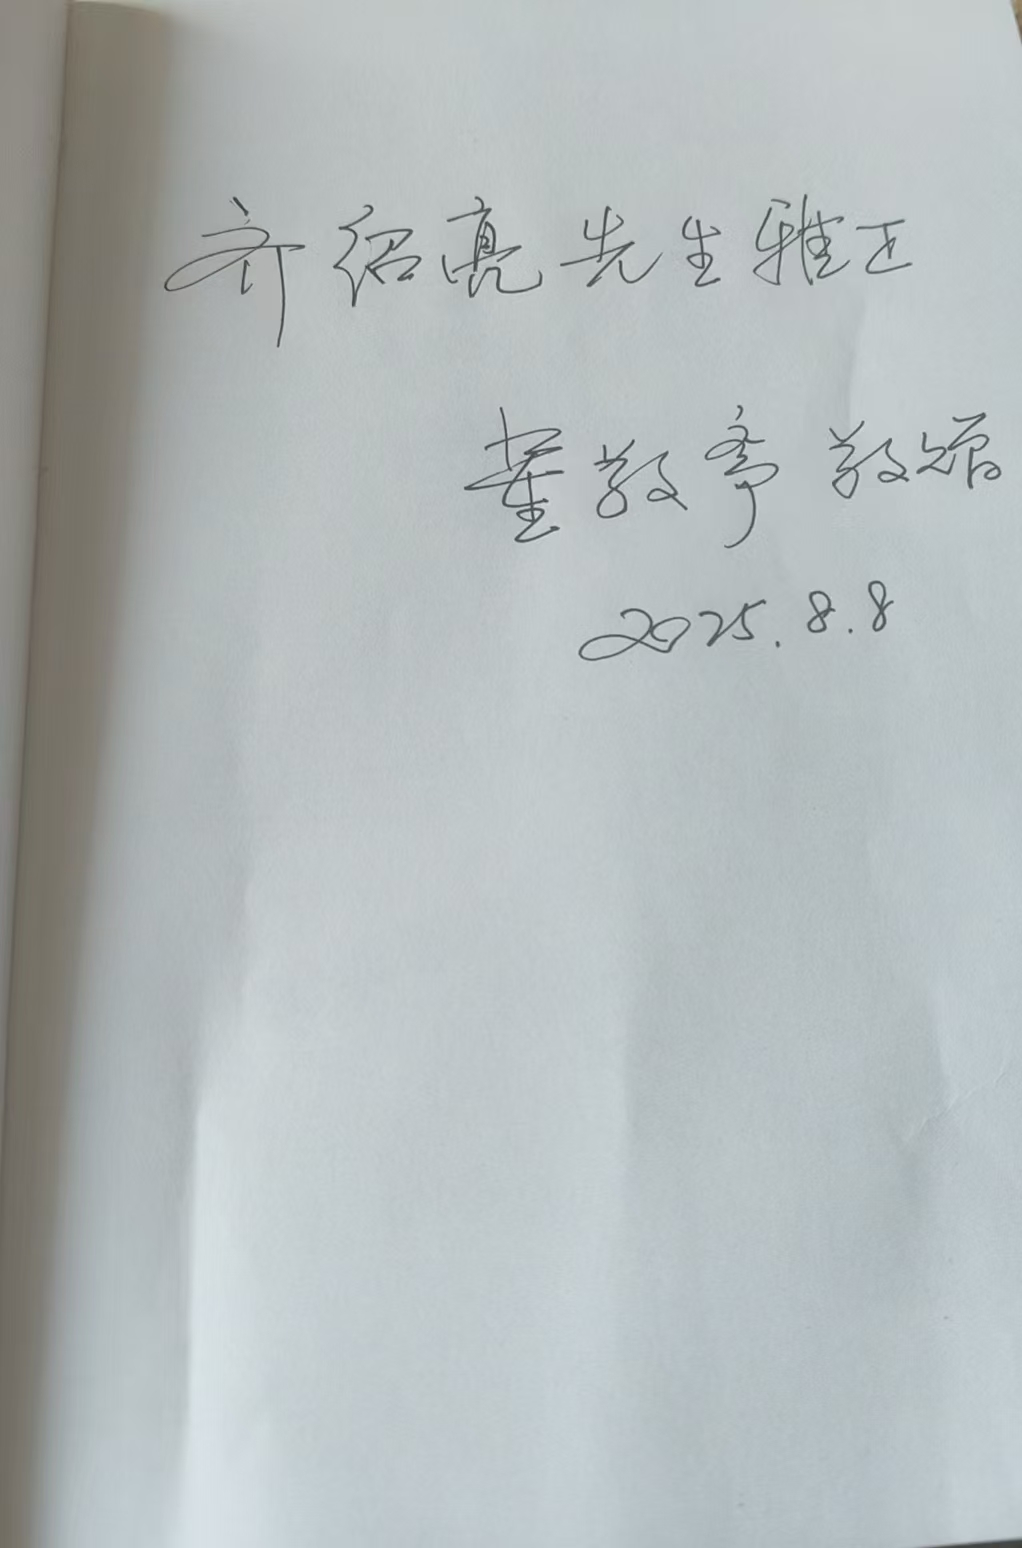 齐绍亮先生雅正
董敬斋敬赠
2025.8.8